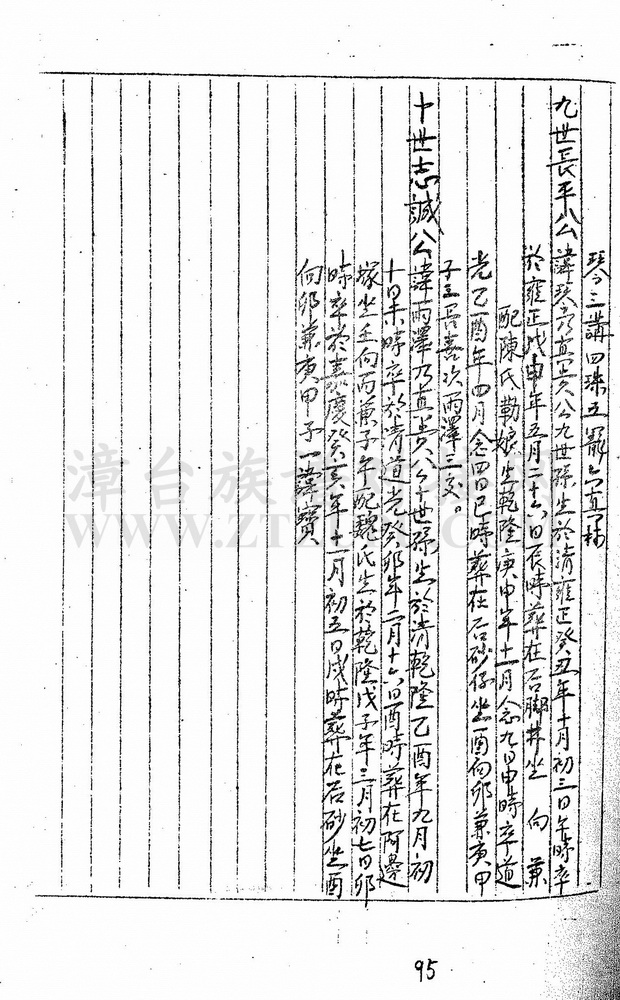 琴三講四珠五罷六直下林
九世長平公諱琴乃直公九世孫生於清雍正癸丑年十月初三日午時卒
於雍正戊申年五月二十六日辰時葬在石腳井坐 向 兼
配陳氏勤娘生乾隆庚申年十一月念九日申時卒道
光乙酉年四月念四巳時葬在石砂仔坐酉向卯兼庚甲
子三長喜次雨澤三交。
十世志誠公諱雨澤乃直貴公十世孫生於清乾隆乙酉年九月初
十日未時卒於清道光癸卯年二月十六日酉時葬在阿邊
塚坐壬向丙兼子午配魏氏生於乾隆戊子年三月初七日卯
時卒於嘉慶癸亥年十一月初五日戌時葬在石砂坐酉
向卯兼庚甲子一諱寶
漳台族
WWW.ZTZ
95